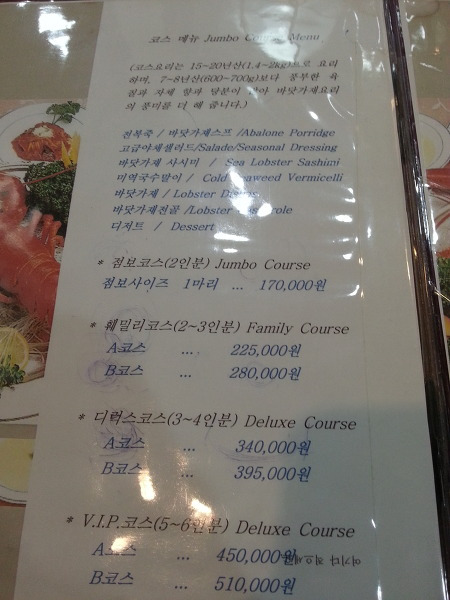 코스 메뉴 Jumbo Course Menu
(코스요리는 15~20년산(1.4~2kg)으로 요리
하며, 7~8년산(600~700g)보다 풍부한 육
질과 자체 향과 담백이 많아 바닷가재요리
의 풍미를 더 해 줍니다.)
전복죽 / 바닷가재스프 /Abalone Porridge
고급야채샐러드/Salade/Seasonal Dressing
바닷가재 사시미 / Sea Lobster Sashimi
미역국수말이 / Cold Seaweed Vermicelli
바닷가재 / Lobster Dishes
바닷가재전골 /Lobster Casserole
디저트 / Dessert
* 점보코스(2인분) Jumbo Course
점보사이즈 1마리 ... 170,000원
* 훼밀리코스(2~3인분) Family Course
A코스 ... 225,000원
B코스 ... 280,000원
* 디럭스코스(3~4인분) Deluxe Course
A코스 ... 340,000원
B코스 ... 395,000원
* V.I.P.코스(5~6인분) Deluxe Course
A코스 ... 450,000원
B코스 ... 510,000원